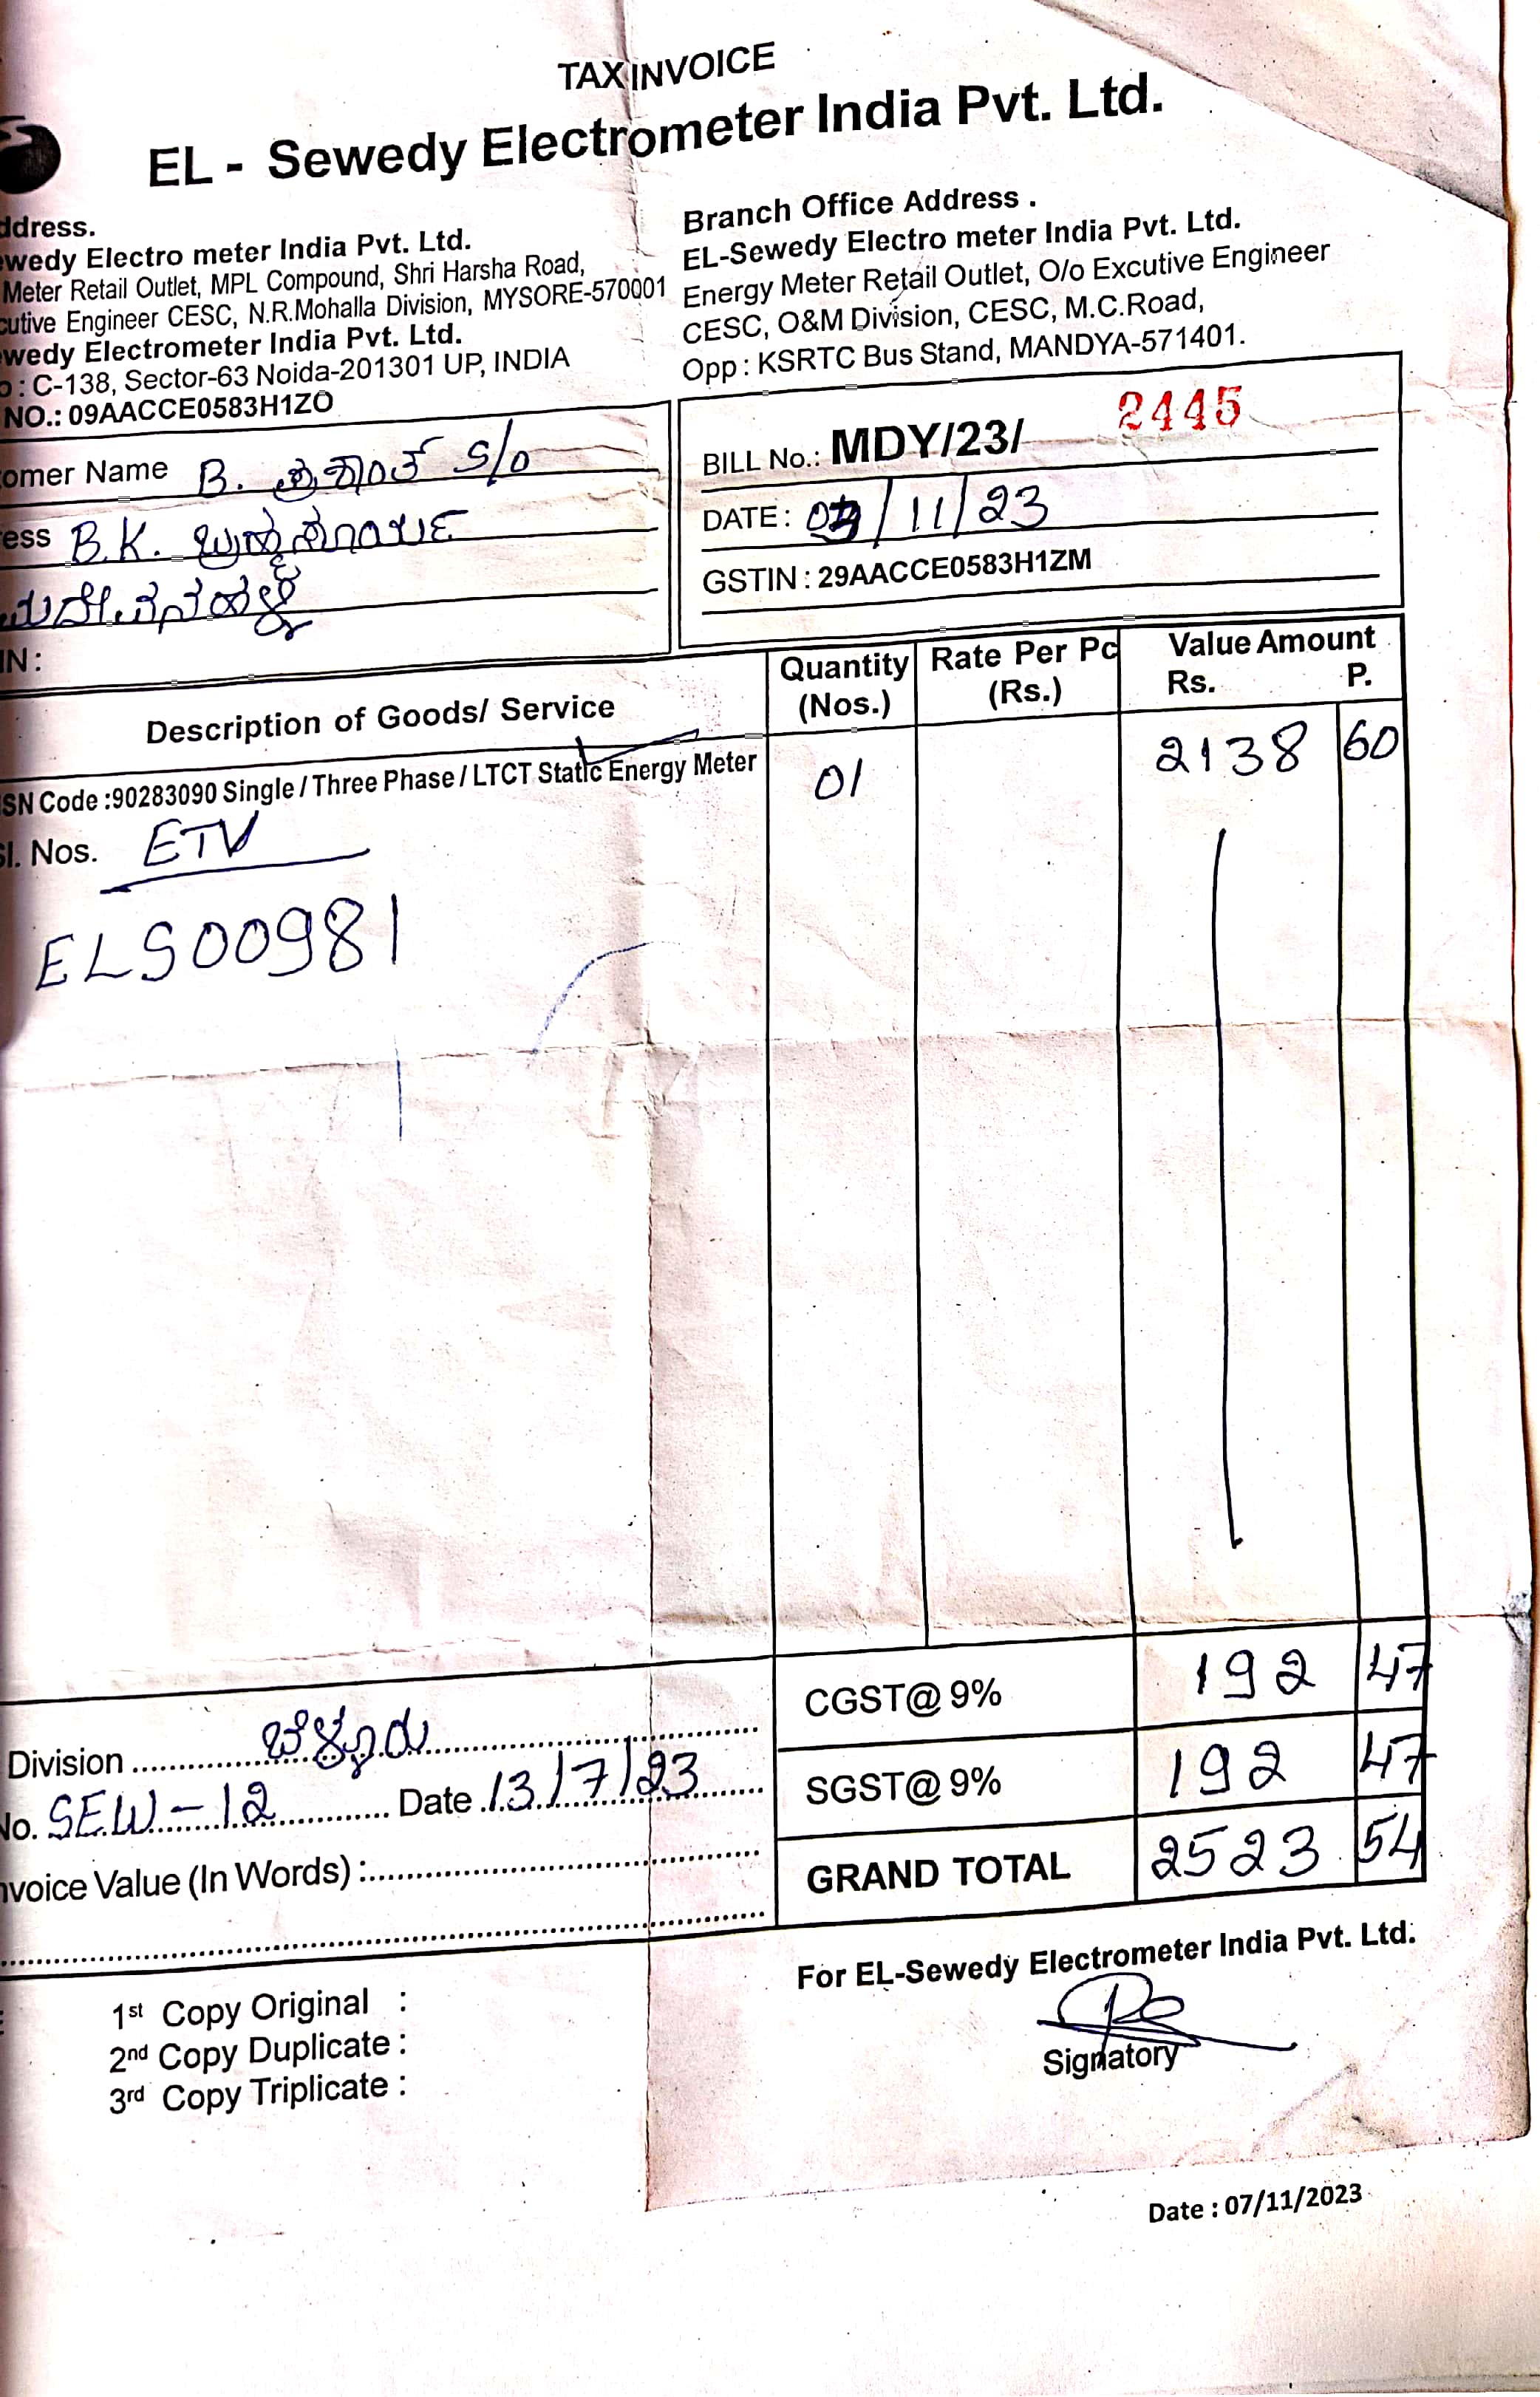 TAX INVOICE
EL - Sewedy Electrometer India Pvt. Ltd.
ddress.
wedy Electro meter India Pvt. Ltd.
Meter Retail Outlet, MPL Compound, Shri Harsha Road,
cutive Engineer CESC, N.R.Mohalla Division, MYSORE-570001
wedy Electrometer India Pvt. Ltd.
o : C-138, Sector-63 Noida-201301 UP, INDIA
NO.: 09AACCE0583H1ZO
Branch Office Address .
EL-Sewedy Electro meter India Pvt. Ltd.
Energy Meter Retail Outlet, O/o Excutive Engineer
CESC, O&M Division, CESC, M.C.Road,
Opp : KSRTC Bus Stand, MANDYA-571401.
omer Name B. ಪ್ರಶಾಂತ್ S/o
ess B.K.
IN :
BILL No.: MDY/23/ 2445
DATE : /11/23
GSTIN : 29AACCE0583H1ZM
Description of Goods/ Service Quantity (Nos.) Rate Per Pc (Rs.) Value Amount Rs. P.
SN Code :90283090 Single / Three Phase / LTCT Static Energy Meter 01 2138 60
Sl. Nos. ETV
ELS00981
CGST@ 9% 192 47
Division ಬೆಳ್ಳೂರು
SGST@ 9% 192 47
No. SEW-12 Date 13/7/23
GRAND TOTAL 2523 54
nvoice Value (In Words) :
For EL-Sewedy Electrometer India Pvt. Ltd.
Signatory
1st Copy Original :
2nd Copy Duplicate :
3rd Copy Triplicate :
Date : 07/11/2023